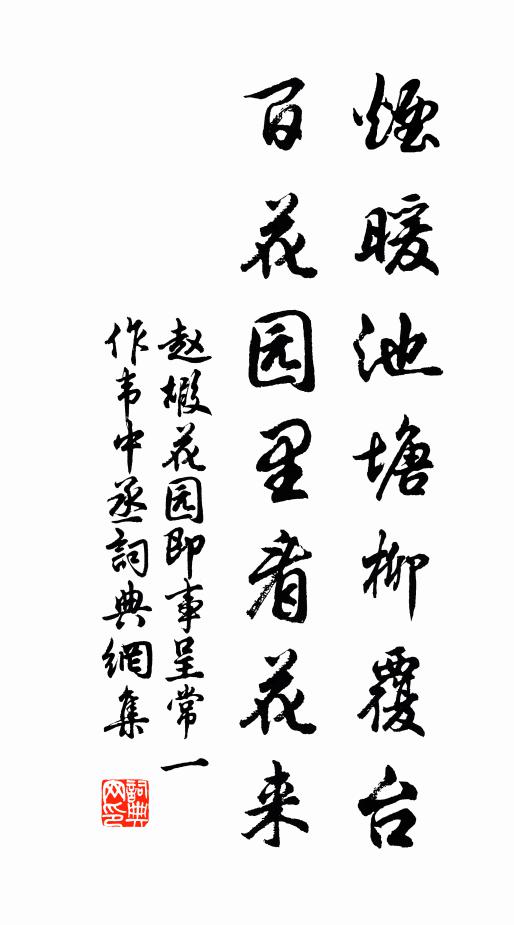 煙暖池塘柳覆台
百花园里看花来
赵嘏花园即事呈常一
作韦中丞詞典網集
詞典网印